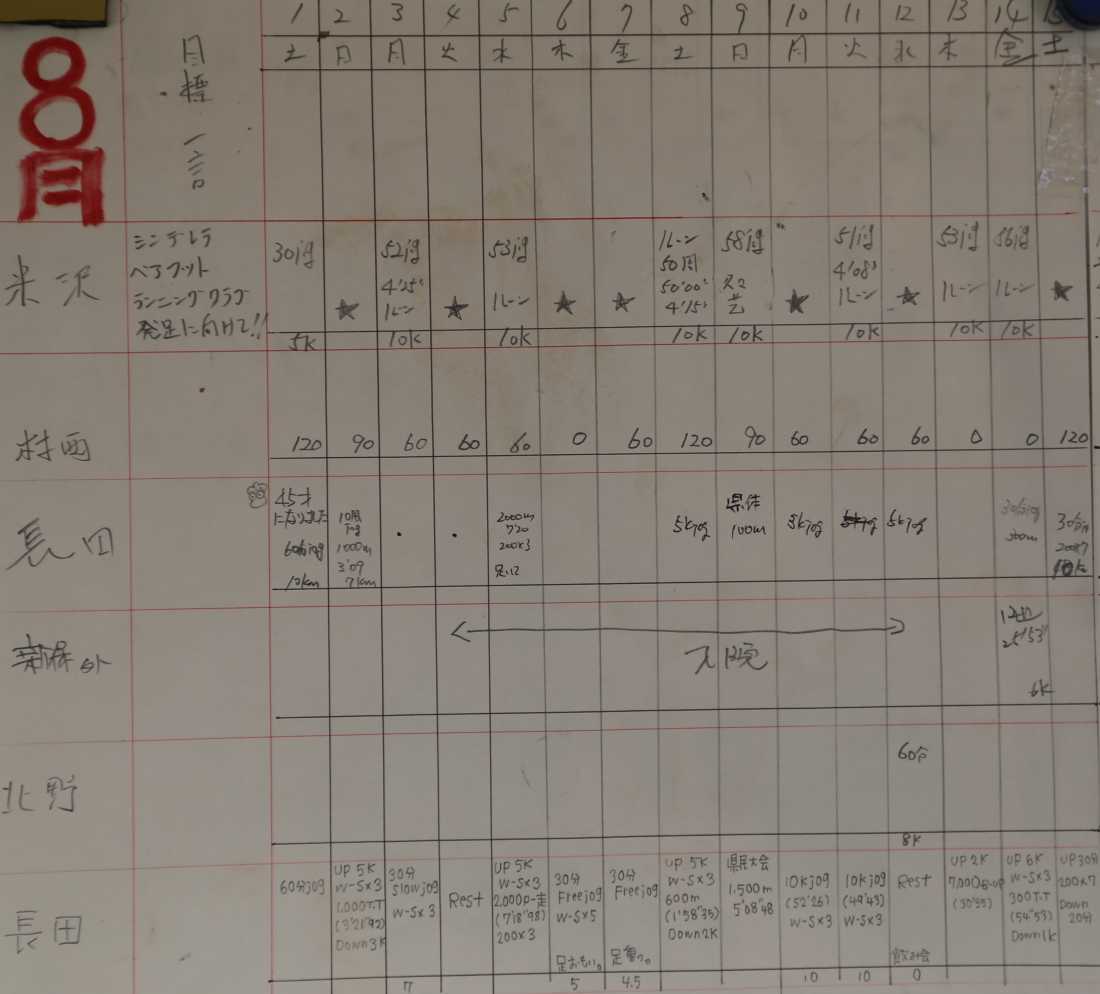 8月
目標一言
1 2 3 4 5 6 7 8 9 10 11 12 13 14 15
土 日 月 火 水 木 金 土 日 月 火 水 木 金 土
米沢
シンデレラ
ベアフット
ランニングクラブ
発足に向けて!!
30jg 52jg 53jg 1レーン 58jg 51jg 53jg 56jg
50周
4'25" 50'00" 4'08"
★ 1レーン ★ 1レーン ★ ★ 4'15" ★ 1レーン ★ 1レーン 1レーン ★
5k 10k 10k 10k 10k 10k 10k 10k
村西
120 90 60 60 60 0 60 120 90 60 60 60 0 0 120
長田
45才
になりました
60分jog
10km
10周
jog
1000m
3'09
7km
・ ・
2000m
7'20
200×3
5kjog
県体
100m
5kjog
5kjog
30分jog
300m
30分jog
200×7
新保
入院
12位
25'53"
6k
北野
60分
8k
長田
60分jog
UP 5K
W-S×3
1,000T.T
(3'21"92)
Down3K
30分
slowjog
W-S×3
7
Rest
UP 5K
W-S×3
2,000P-走
(7'18"98)
200×3
30分
Freejog
W-S×5
足おもい。
5
30分
Freejog
足重っ。
4.5
UP 5K
W-S×3
600m
(1'58"35)
Down2K
県民大会
1,500m
5'08"48
10kjog
(52'26)
W-S×3
10
10kjog
(49'43)
W-S×3
10
Rest
飲み会
0
UP 2K
7,000B-up
(30'55)
UP 6K
W-S×3
300T.T
(54"53)
Down1k
UP30分
200×7
Down
20分